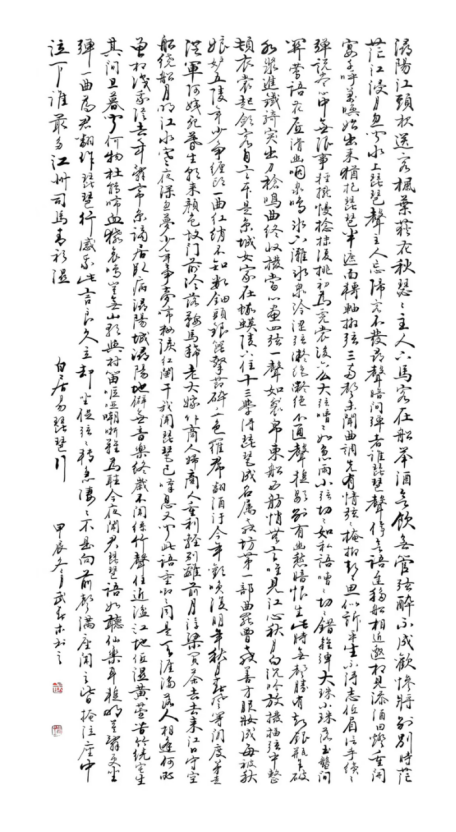 潯陽江頭夜送客楓葉荻花秋瑟瑟主人下馬客在船舉酒欲飲無管弦醉不成歡慘將別別時茫
茫江浸月忽聞水上琵琶聲主人忘歸客不發尋聲暗問彈者誰琵琶聲停欲語遲移船相近邀相見添酒回燈重開
宴千呼萬喚始出來猶抱琵琶半遮面轉軸撥弦三兩聲未成曲調先有情弦弦掩抑聲聲思似訴平生不得志低眉信手續續
彈說盡心中無限事輕攏慢捻抹復挑初為霓裳後六幺大弦嘈嘈如急雨小弦切切如私語嘈嘈切切錯雜彈大珠小珠落玉盤間
關鶯語花底滑幽咽泉鳴冰下灘冰泉冷澀弦凝絕凝絕不通聲暫歇別有幽愁暗恨生此時無聲勝有聲銀瓶乍破
水漿迸鐵騎突出刀槍鳴曲終收撥當心畫四弦一聲如裂帛東船西舫悄無言唯見江心秋月白沉吟放撥插弦中整
頓衣裳起斂容自言本是京城女家在蝦蟆陵下住十三學得琵琶成名屬教坊第一部曲罷曾教善才服妝成每被秋
娘妒五陵年少爭纏頭一曲紅綃不知數鈿頭銀篦擊節碎血色羅裙翻酒污今年歡笑復明年秋月春風等閒度弟走
從軍阿姨死暮去朝來顏色故門前冷落鞍馬稀老大嫁作商人婦商人重利輕別離前月浮梁買茶去去來江口守空
船繞船月明江水寒夜深忽夢少年事夢啼妝淚紅闌干我聞琵琶已嘆息又聞此語重唧唧同是天涯淪落人相逢何必
曾相識我從去年辭帝京謫居臥病潯陽城潯陽地僻無音樂終歲不聞絲竹聲住近湓江地低濕黃蘆苦竹繞宅生
其間旦暮聞何物杜鵑啼血猿哀鳴豈無山歌與村笛嘔啞嘲哳難為聽今夜聞君琵琶語如聽仙樂耳暫明莫辭更坐
彈一曲為君翻作琵琶行感我此言良久立卻坐促弦弦轉急淒淒不似向前聲滿座聞之皆掩泣座中
泣下誰最多江州司馬青衫濕
白居易琵琶行 甲辰